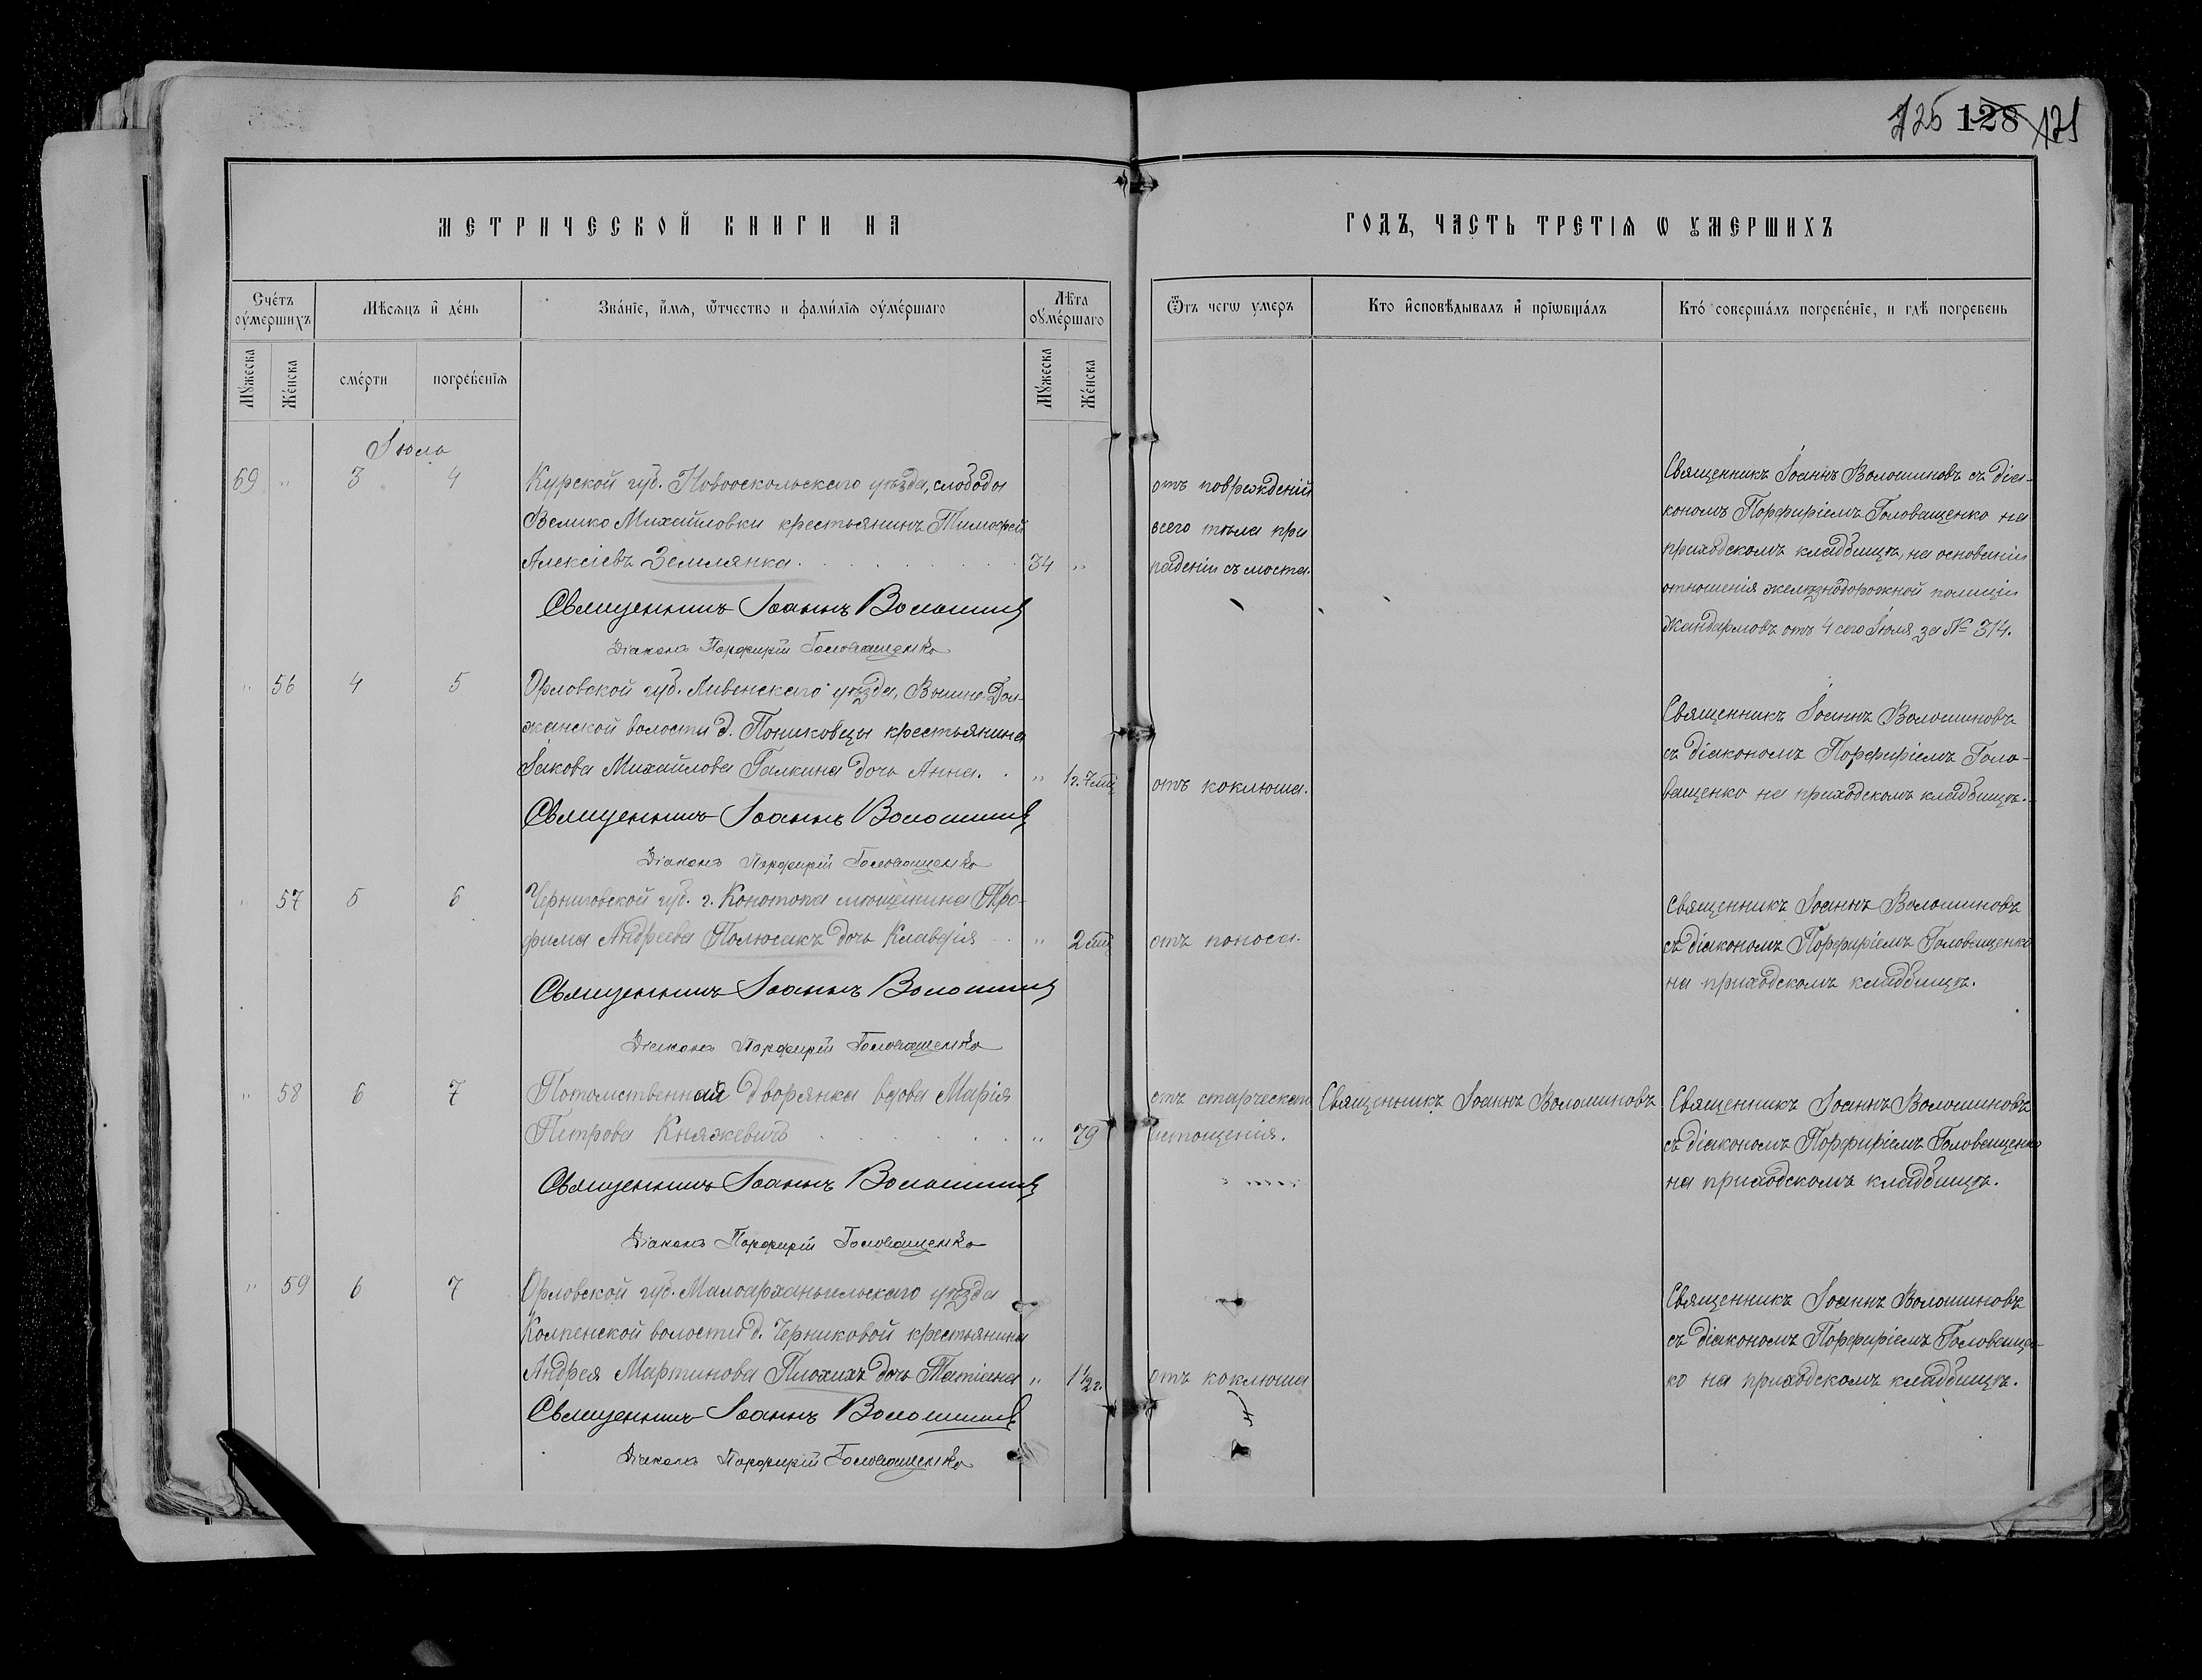 125 128 121
МЕТРИЧЕСКОЙ КНИГИ НА
ГОДЪ, ЧАСТЬ ТРЕТІѦ Ѡ ОУМЕРШИХЪ
Счетъ оумершихъ
Мѣсяцъ и день
Званіе, имя, ѿчество и фамилія оумершаго
Лѣта оумершаго
Ѿ чегѡ умеръ
Кто исповѣдывалъ и пріѡбщалъ
Кто совершалъ погребеніе, и гдѣ погребенъ
Мужеска
Женска
смерти
погребенія
Мужеска
Женска
Іюль
69 " 3 4
Курской губ. Новооскольскаго уѣзда, слободы
Велико Михайловки крестьянинъ Тимофей
Алексіевъ Землянка. 34 "
отъ поврежденій
всего тѣла при
паденіи съ моста.
Священникъ Іоаннъ Волошиновъ съ діа-
кономъ Порфиріемъ Головащенко на
приходскомъ кладбищѣ, на основаніи
отношенія желѣзнодорожной полиціи
Жандармовъ отъ 4 сего Іюля за № 314.
Священникъ Іоаннъ Волошиновъ
Діаконъ Порфирій Головащенко
" 56 4 5
Орловской губ. Ливенскаго уѣзда, Вышне-Дол-
жанской волости д. Пониковцы крестьянина
Іакова Михайлова Галкина дочь Анна. " 1 г. 7 мц
отъ коклюша.
Священникъ Іоаннъ Волошиновъ
съ діакономъ Порфиріемъ Голо-
ващенко на приходскомъ кладбищѣ.
Священникъ Іоаннъ Волошиновъ
Діаконъ Порфирій Головащенко
" 57 5 6
Черниговской губ. г. Конотопа мѣщанина Тро-
фима Андреева Полюсакъ дочь Клавдія " 2 мц
отъ поноса.
Священникъ Іоаннъ Волошиновъ
съ діакономъ Порфиріемъ Головащенко
на приходскомъ кладбищѣ.
Священникъ Іоаннъ Волошиновъ
Діаконъ Порфирій Головащенко
" 58 6 7
Потомственная дворянка вдова Марія
Петрова Княжевичъ " 79
отъ старческаго
истощенія.
Священникъ Іоаннъ Волошиновъ
Священникъ Іоаннъ Волошиновъ
съ діакономъ Порфиріемъ Головащенко
на приходскомъ кладбищѣ.
Священникъ Іоаннъ Волошиновъ
Діаконъ Порфирій Головащенко
" 59 6 7
Орловской губ. Малоархангельскаго уѣзда
Колпенской волости д. Черниковой крестьянина
Андрея Мартинова Плохихъ дочь Татіана " 1 1/2 г.
отъ коклюша
Священникъ Іоаннъ Волошиновъ
съ діакономъ Порфиріемъ Головащен-
ко на приходскомъ кладбищѣ.
Священникъ Іоаннъ Волошиновъ
Діаконъ Порфирій Головащенко